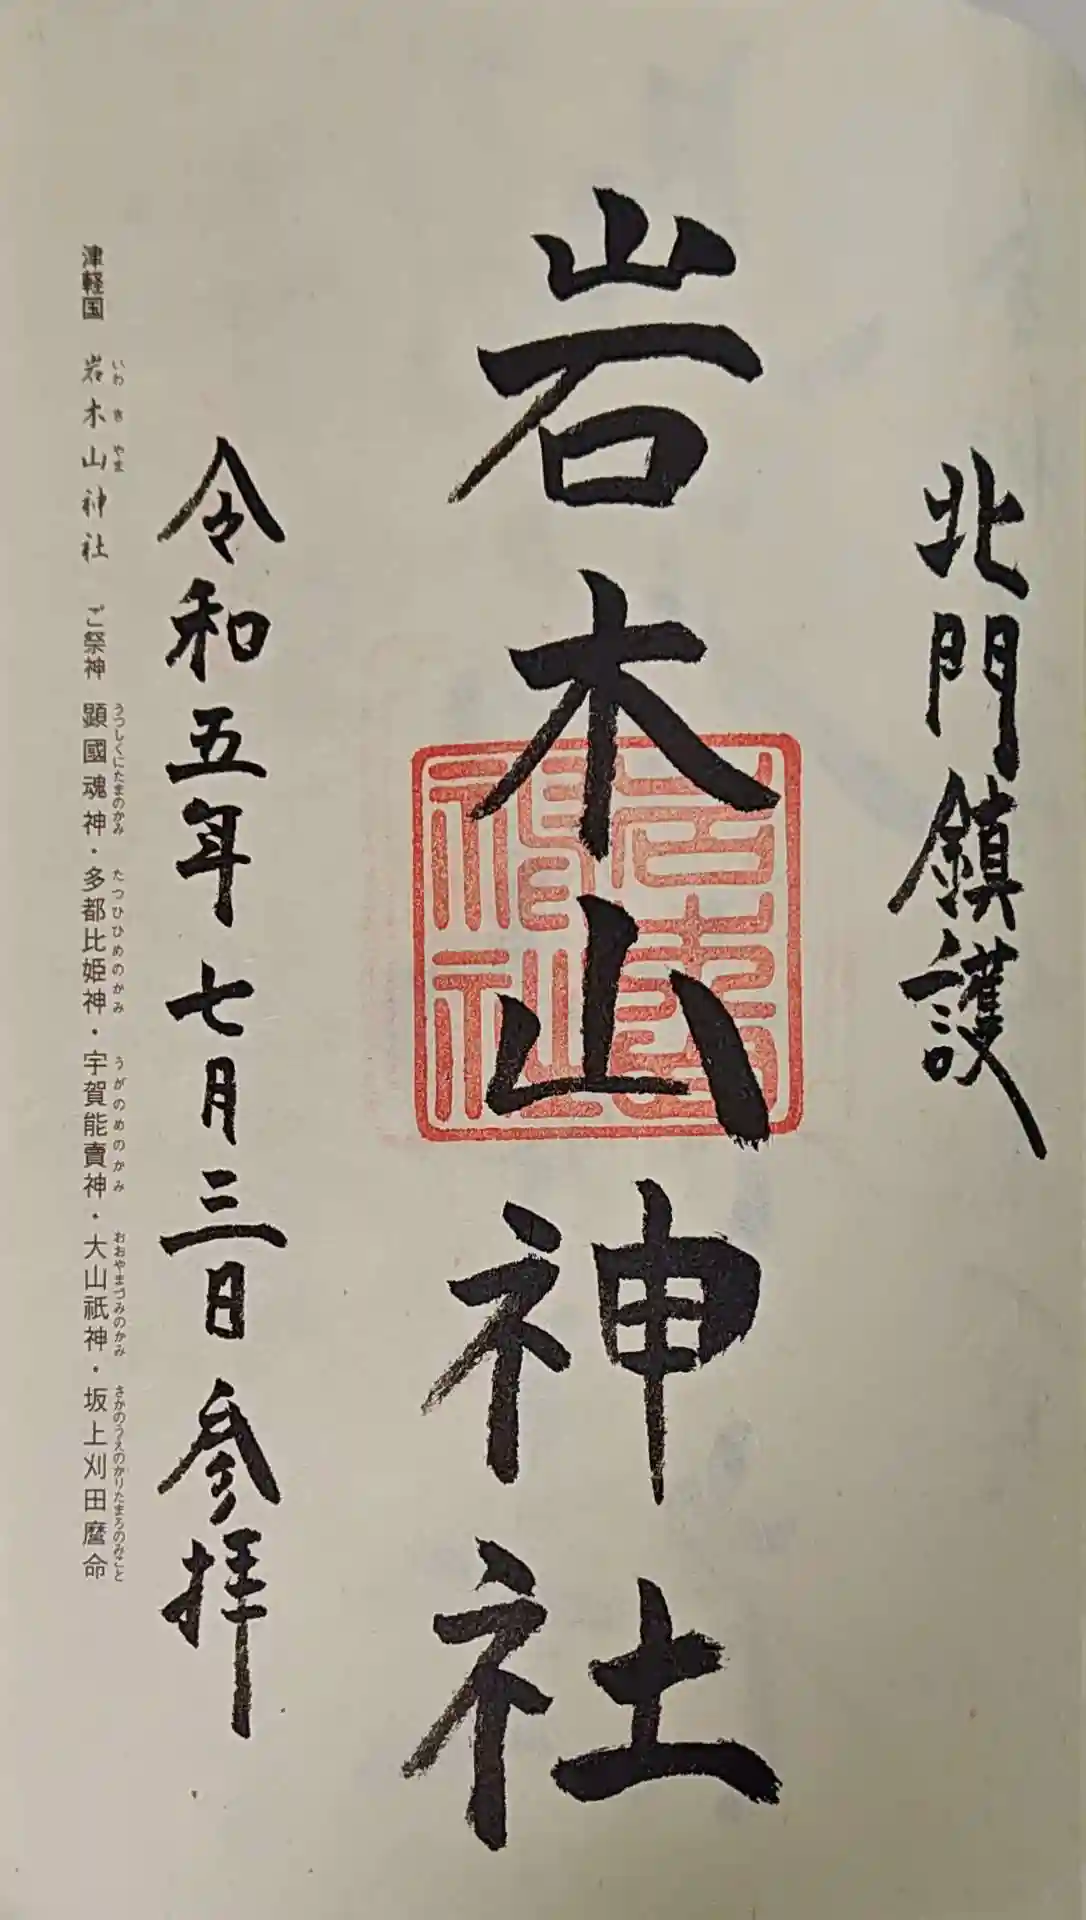 北門鎮護
岩木山神社
岩木山神社
令和五年七月三日参拝
津軽国 岩木山神社 ご祭神 顕國魂神・多都比姫神・宇賀能賣神・大山祇神・坂上刈田麿命
いわ き やま うつしくにたまのかみ たつひひめのかみ うがのめのかみ おおやまづみのかみ さかのうえのかりたまろのみこと